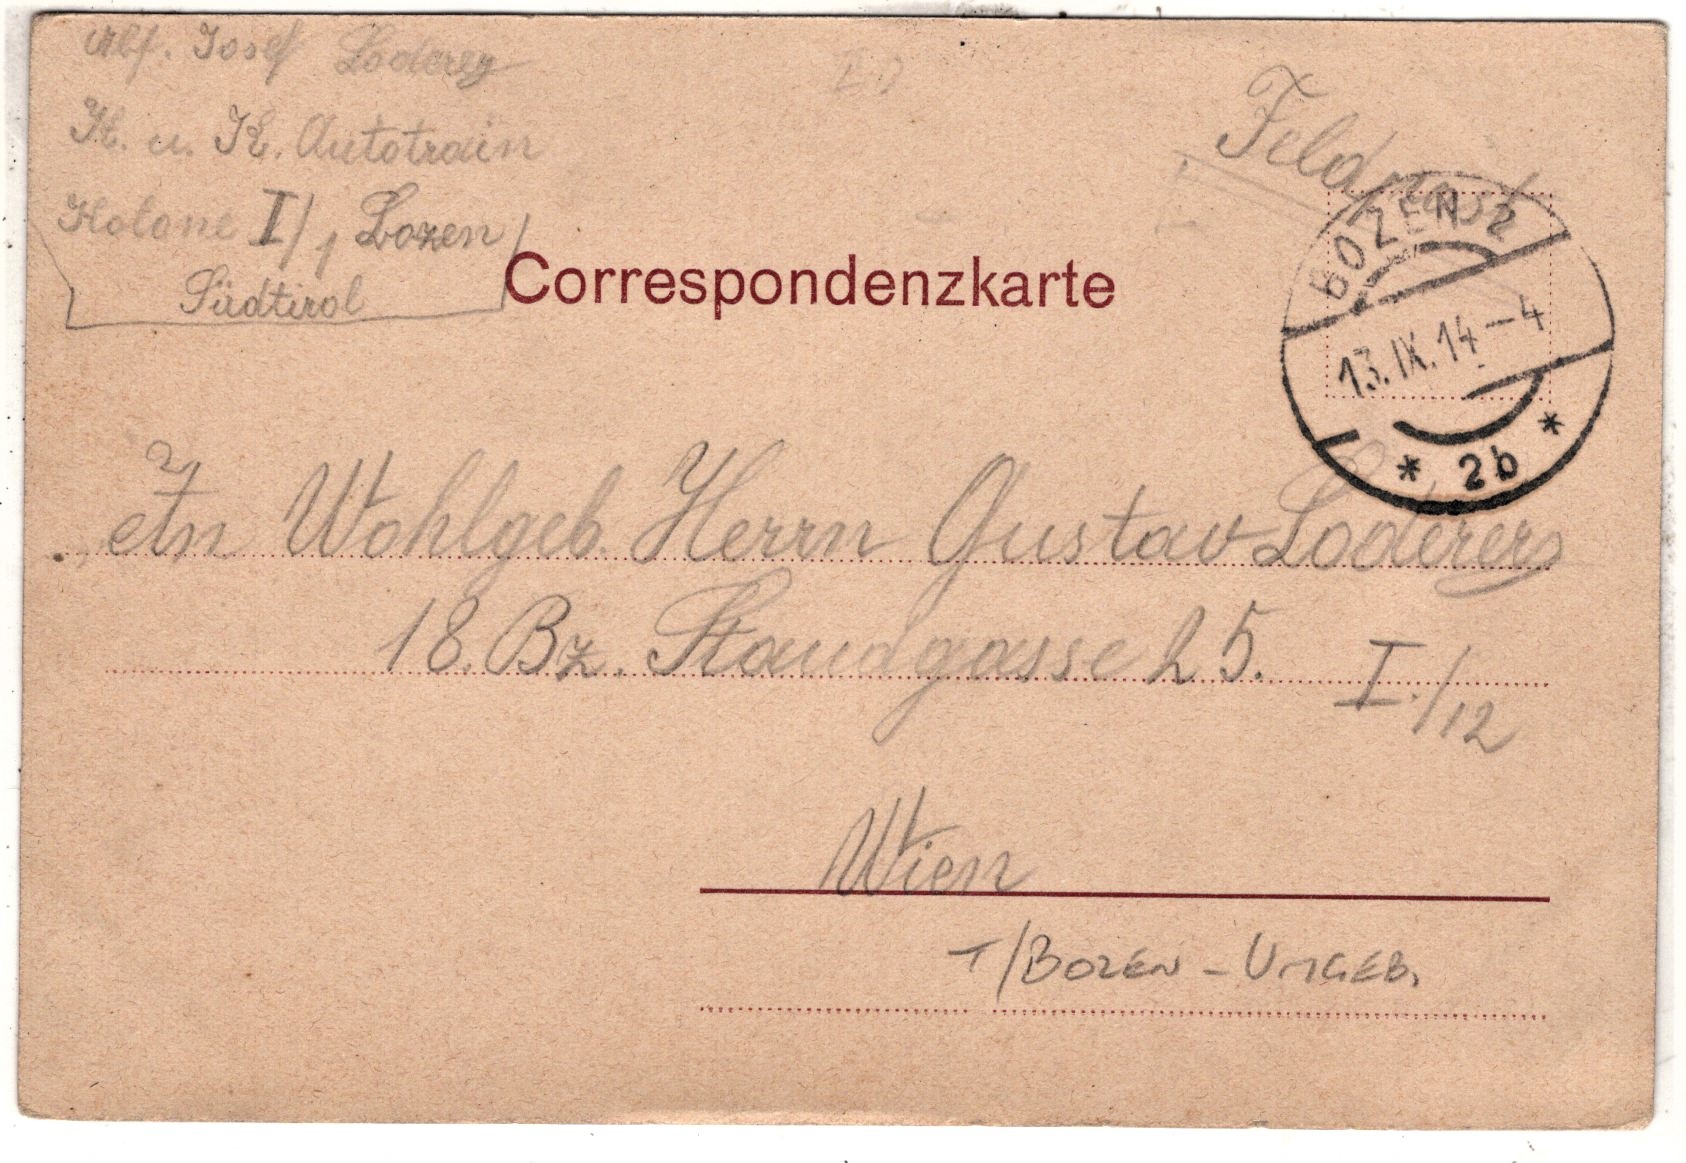 Abs. Josef Loderer
K. u. K. Autotrain
Kolone I/1 Bozen
Südtirol
Feldpost
Correspondenzkarte
BOZEN 2
13.IX.14-4
* 2b *
An Wohlgeb. Herrn Gustav Loderer
18. Bz. Staudgasse 25. I./12
Wien
T/BOZEN - UMGEB.